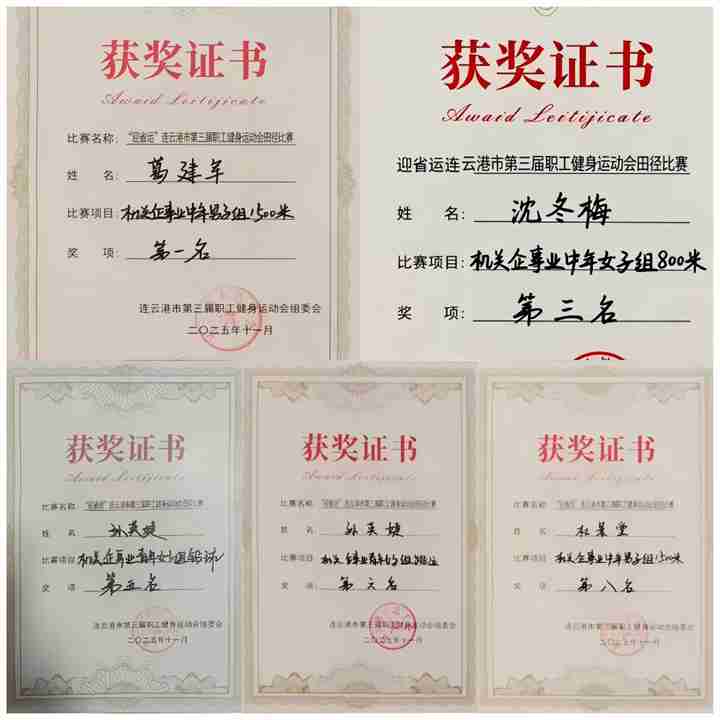 获奖证书
Awaid Leitijicate
比赛名称：“迎省运”连云港市第三届职工健身运动会田径比赛
姓 名：葛建军
比赛项目：机关企事业中年男子组1500米
奖 项：第一名
连云港市第三届职工健身运动会组委会
二〇二五年十一月
获奖证书
Awaid Leitijicate
迎省运连云港市第三届职工健身运动会田径比赛
姓 名：沈冬梅
比赛项目：机关企事业中年女子组800米
奖 项：第三名
获奖证书
Awaid Leitijicate
比赛名称：“迎省运”连云港市第三届职工健身运动会田径比赛
姓 名：孙英婕
比赛项目：机关企事业青年女子组铅球
奖 项：第五名
连云港市第三届职工健身运动会组委会
二〇二五年十一月
获奖证书
Awaid Leitijicate
比赛名称：“迎省运”连云港市第三届职工健身运动会田径比赛
姓 名：孙英婕
比赛项目：机关企事业青年女子组
奖 项：第六名
连云港市第三届职工健身运动会组委会
二〇二五年十一月
获奖证书
Awaid Leitijicate
比赛名称：“迎省运”连云港市第三届职工健身运动会田径比赛
姓 名：杜
比赛项目：机关企事业中年男子组1500米
奖 项：第八名
连云港市第三届职工健身运动会组委会
二〇二五年十一月